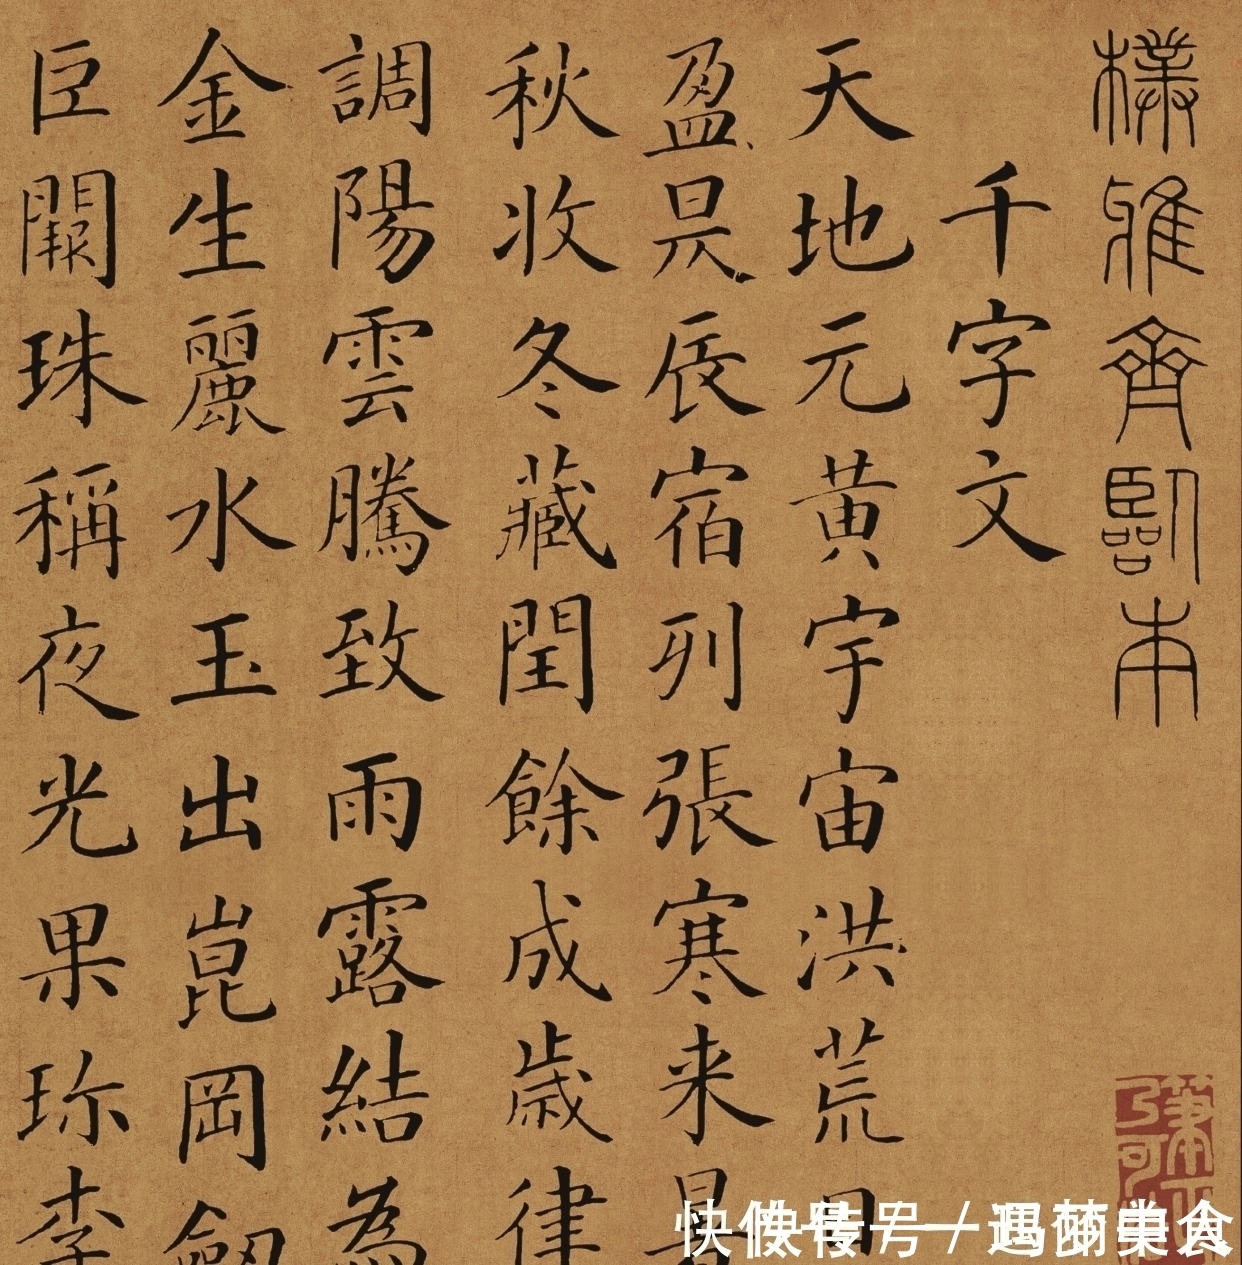 樸雅齊臨本
千字文
天地元黄宇宙洪荒日
盈昃辰宿列張寒来暑
秋收冬藏閏餘成歲律
調陽雲騰致雨露結為
金生麗水玉出崑岡劔
巨闕珠稱夜光果珎李
快传号/